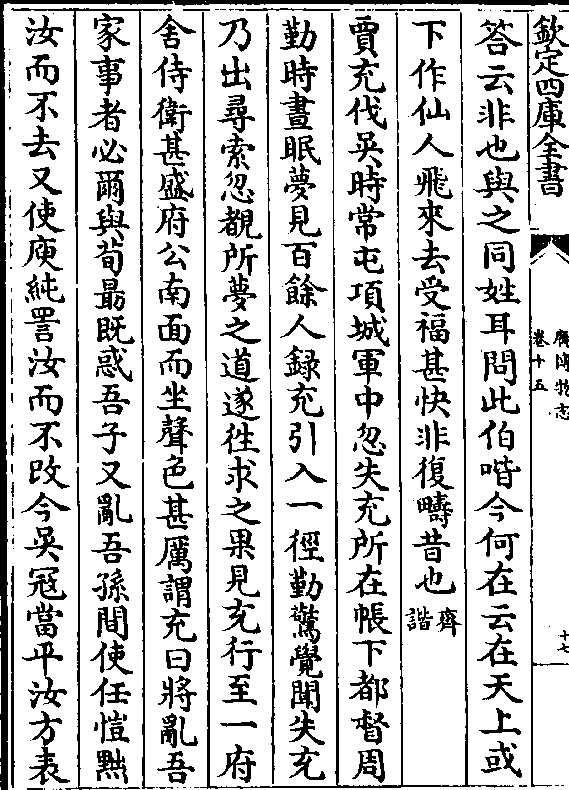 欽定四庫全書
廣博物志
卷十五
十七
答云非也與之同姓耳問此伯喈今何在云在天上或
下作仙人飛來去受福甚快非復疇昔也齊諧
賈充伐吳時常屯項城軍中忽失充所在帳下都督周
勤時晝眠夢見百餘人録充引入一徑勤驚覺聞失充
乃出尋索忽覩所夢之道遂徃求之果見充行至一府
舍侍衛甚盛府公南面而坐聲色甚厲謂充曰將亂吾
家事者必爾與荀朂既惑吾子又亂吾孫間使任愷黜
汝而不去又使庾純詈汝而不改今吳冦當平汝方表